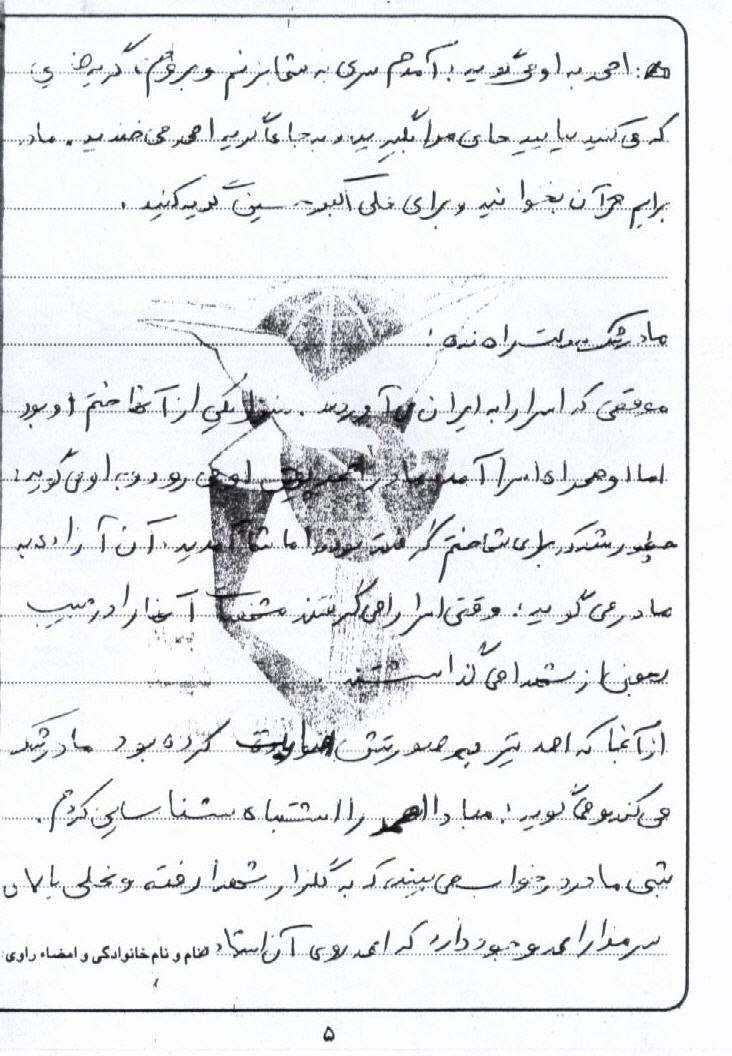 احمد به او می گوید: آمدم سری به شما بزنم و بروم، گریه چی
که می کنید بیایید جای مرا بگیرید، به جای گریه احمد می خندید. مادر
برایم قرآن بخوانید و برای علی اکبر حسین گریه کنید.
مادر شک به دلت راه نده:
موقعی که اسرا را به ایران می آوردند. یکی از آنها ختم او بود
اما او همراه اسرا آمد. مادر احمد پیش او می رود و به او می گوید:
چطور شد که برای شما ختم گرفته بودند اما شما آمدید. آن آزاده به
مادر می گوید: وقتی اسرا را می گرفتند مشخصات آنها را در جیب
بعضی از شهدا می گذاشتند.
از آنجا که احمد تیر به صورتش اصابت کرده بود مادر شک
می کند و می گوید: مبادا احمد را اشتباه شناسایی کردم.
شبی مادر در خواب می بیند که به گلزار شهدا رفته و نخلی بالای
سر مزار احمد وجود دارد که احمد روی آن ایستاد
نام و نام خانوادگی و امضاء راوی
۵